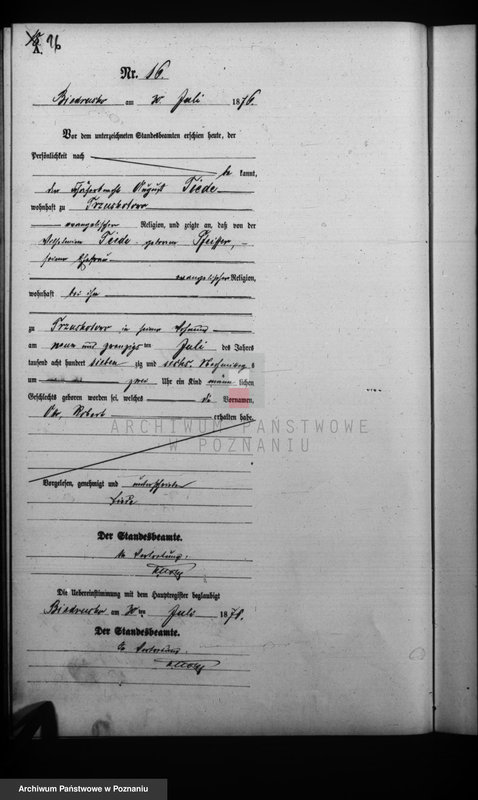 A
Nr. 16.
Biedrusko am 30. Juli 1876.
Vor dem unterzeichneten Standesbeamten erschien heute, der
Persönlichkeit nach
be kannt,
der August Tiede
wohnhaft zu
evangelischer Religion, und zeigte an, daß von der
Wilhelmine Tiede geborene Pfeiffer,
seiner Ehefrau
evangelischer Religion,
wohnhaft bei ihm
zu in seiner Wohnung
am neun und zwanzigsten Juli des Jahres
tausend acht hundert sieben zig und sechs, Nachmittag s
um zwei Uhr ein Kind männ lichen
Geschlechts geboren worden sei, welches die Vornamen,
Robert erhalten habe.
ARCHIWUM PAŃSTWOWE
W POZNANIU
Vorgelesen, genehmigt und unterschrieben
Tiede
Der Standesbeamte.
In Vertretung.
Die Uebereinstimmung mit dem Hauptregister beglaubigt
Biedrusko am 30 ten Juli 1876.
Der Standesbeamte.
In Vertretung.
Archiwum Panstwowe w Poznaniu